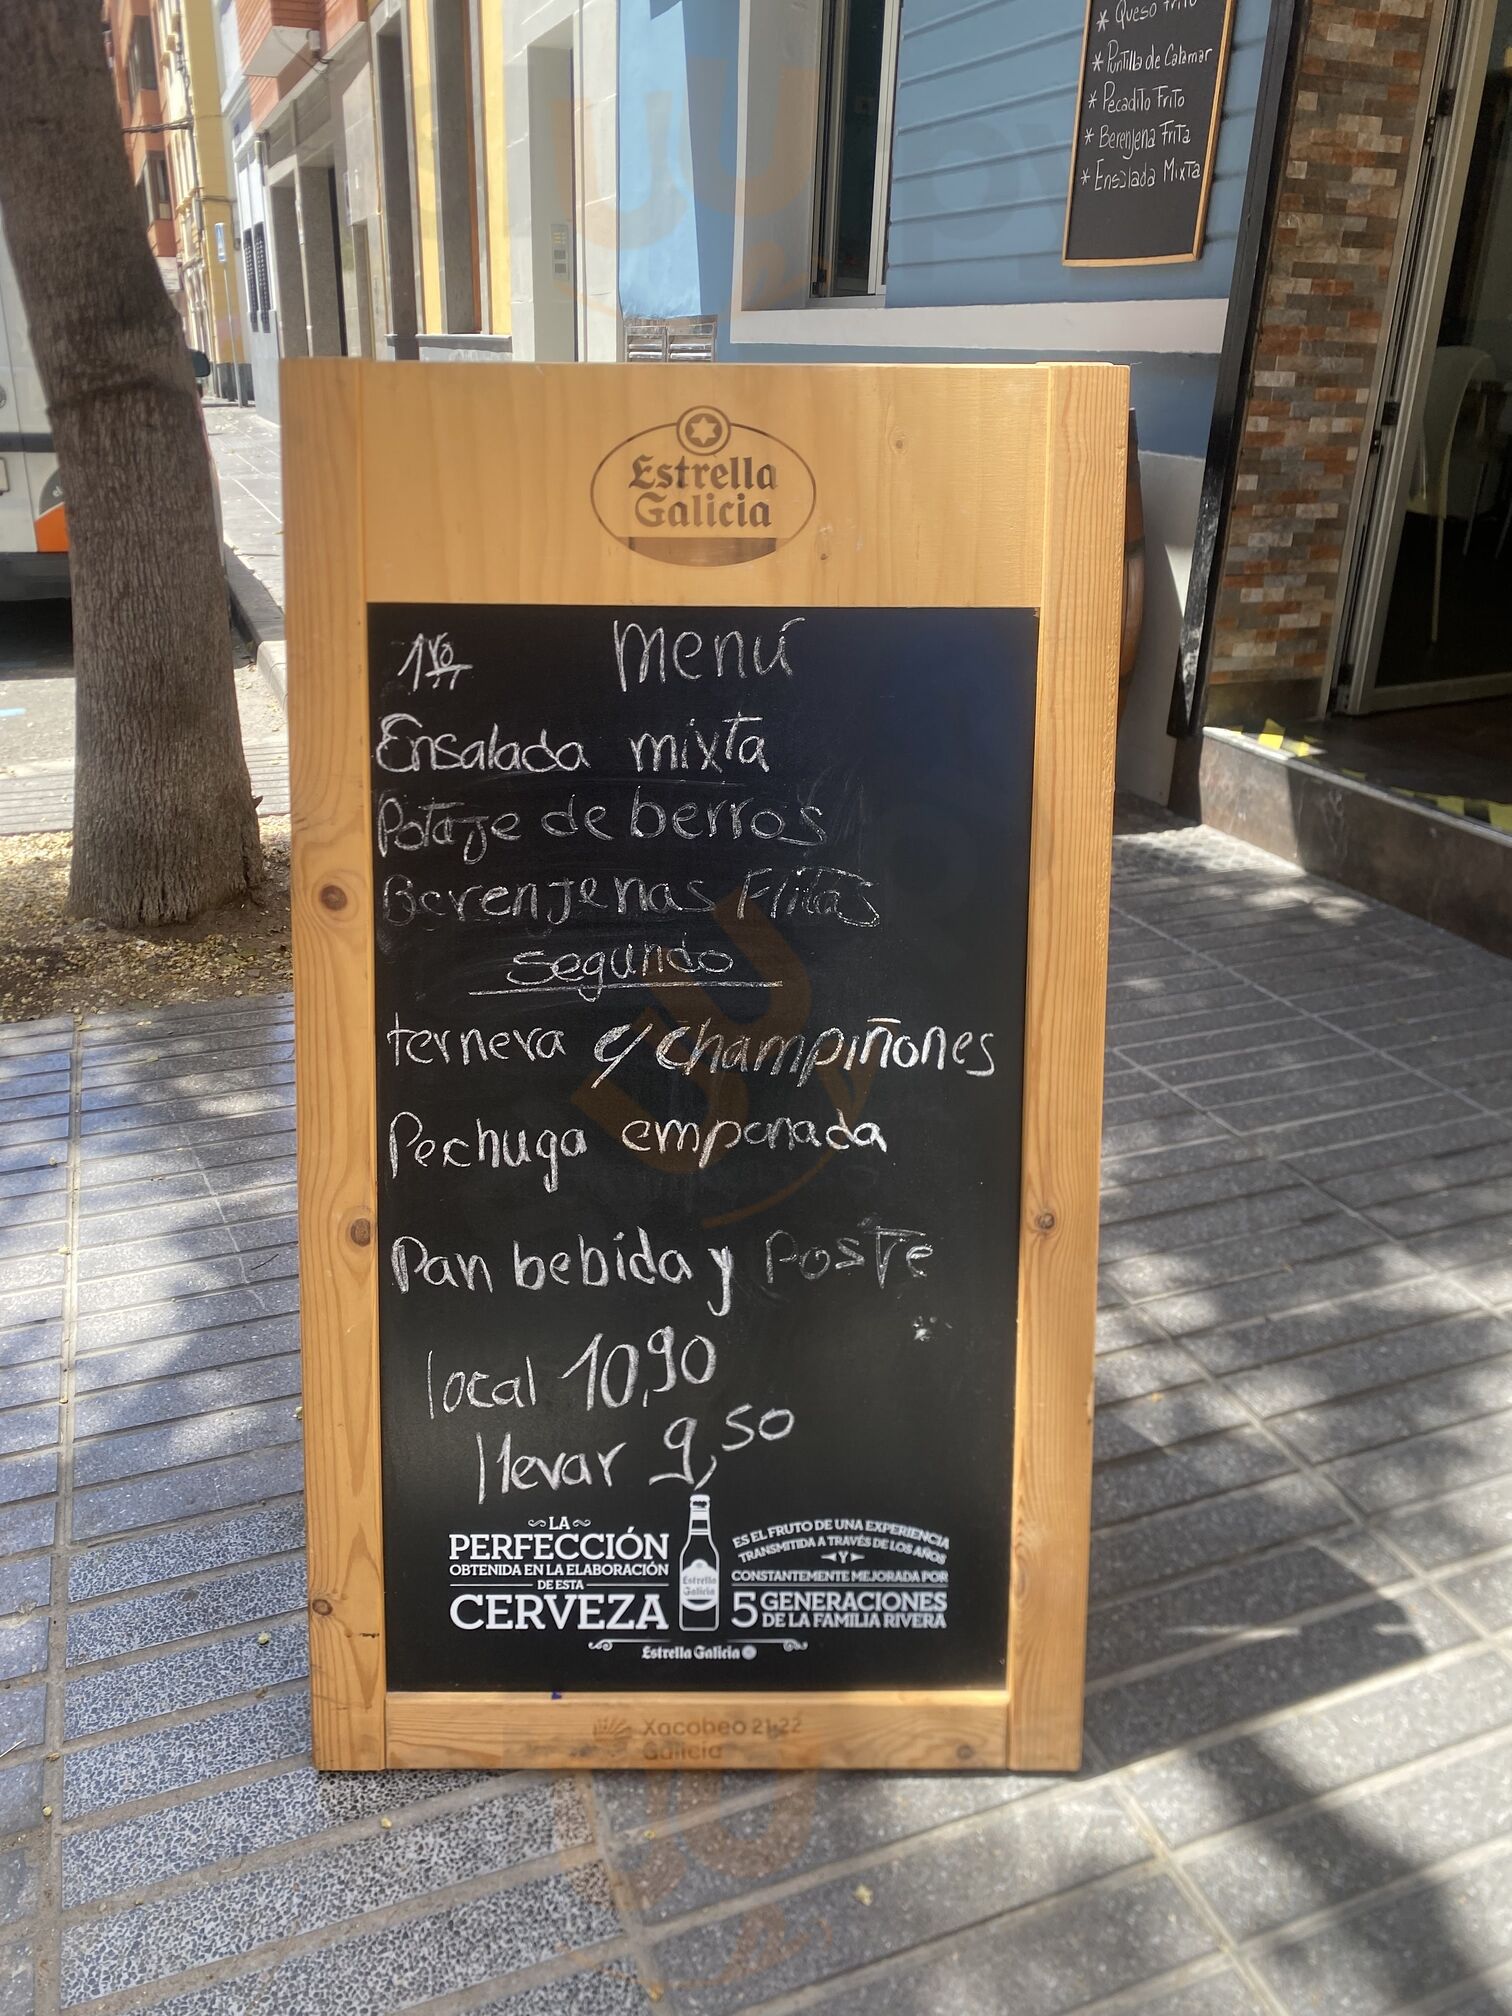 * Queso frito
* Puntilla de Calamar
* Pecadito Frito
* Berenjena Frita
* Ensalada Mixta
Estrella
Galicia
1ro Menú
Ensalada mixta
Potaje de berros
Berenjenas Flitas
segundo
ternera y champiñones
Pechuga emponada
Pan bebida y Postre
local 10,90
llevar 9,50
LA
PERFECCIÓN
OBTENIDA EN LA ELABORACIÓN
DE ESTA
CERVEZA
Estrella
Galicia
ES EL FRUTO DE UNA EXPERIENCIA
TRANSMITIDA A TRAVÉS DE LOS AÑOS
Y
CONSTANTEMENTE MEJORADA POR
5 GENERACIONES
DE LA FAMILIA RIVERA
Estrella Galicia
Xacobeo 21·22
Galicia